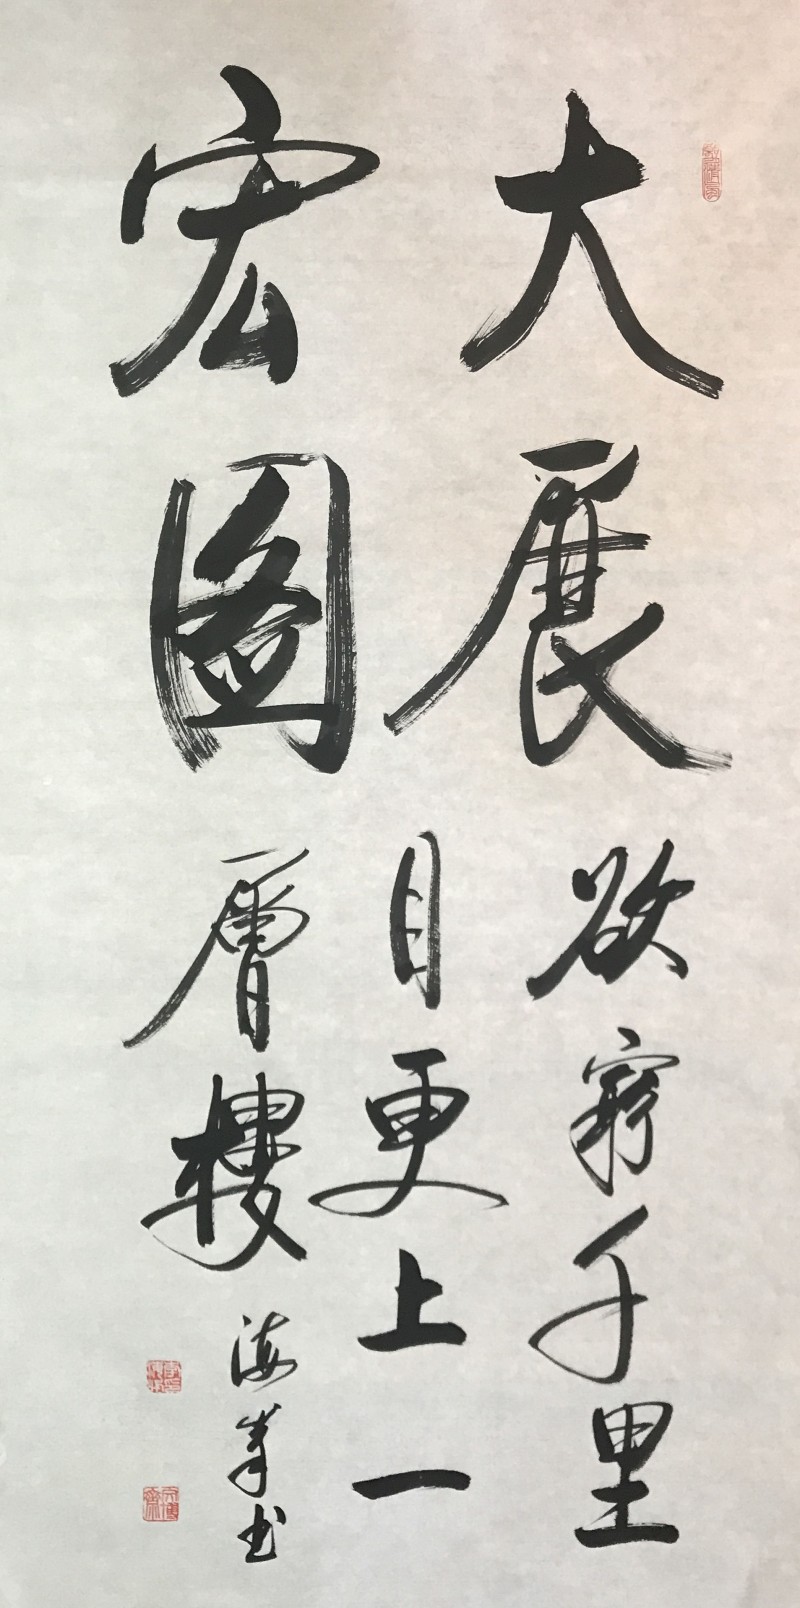 大展
宏图
欲窮千里
目更上一
層樓
海峯书